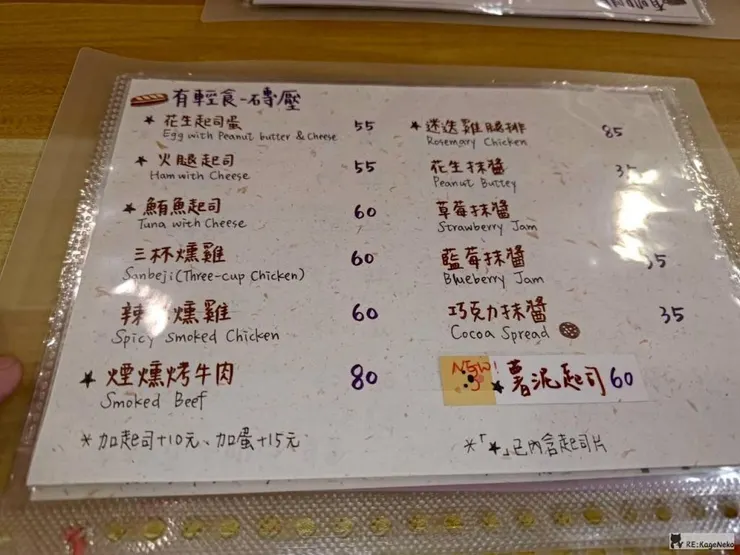 有輕食-磚壓
★ 花生起司蛋 55
Egg with Peanut butter & Cheese
★ 火腿起司 55
Ham with Cheese
★ 鮪魚起司 60
Tuna with Cheese
三杯燻雞 60
Sanbeji (Three-cup Chicken)
辣 燻雞 60
Spicy Smoked Chicken
★ 煙燻烤牛肉 80
Smoked Beef
*加起司+10元、加蛋+15元
★ 迷迭雞腿排 85
Rosemary Chicken
花生抹醬 35
Peanut Buttey
草莓抹醬
Strawberry Jam
藍莓抹醬 35
Blueberry Jam
巧克力抹醬 35
Cocoa Spread
NEW!
★ 薯泥起司 60
*「★」已內含起司片
RE:KageNeko